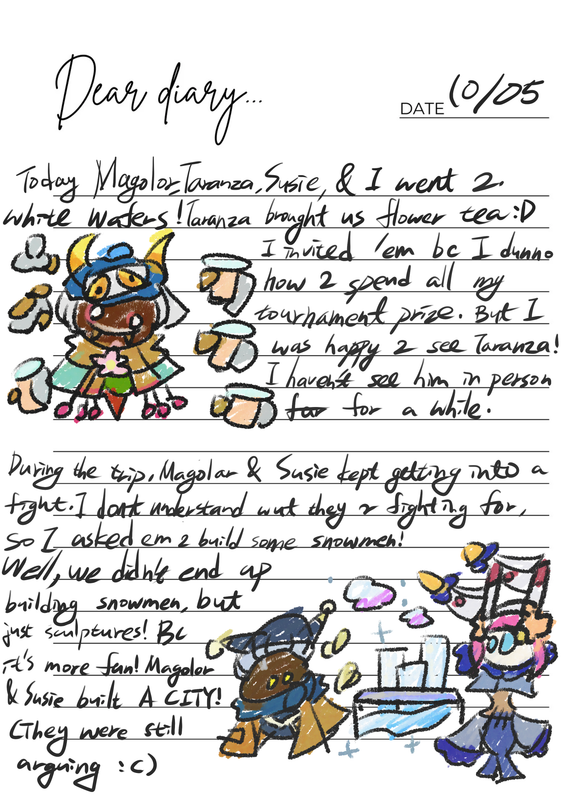 Dear diary...
DATE 10/05
Today Magolor, Taranza, Susie, & I went 2
white wafers! Taranza brought us flower tea :D
I invited 'em bc I dunno
how 2 spend all my
tournament prize. But I
was happy 2 see Taranza!
I haven't see him in person
for a while.
During the trip, Magolor & Susie kept getting into a
fight. I dont understand wut they r fighting for,
so I asked em 2 build some snowmen!
Well, we didn't end up
building snowmen, but
just sculptures! Bc
it's more fun! Magolor
& Susie built A CITY!
(They were still
arguing :c)